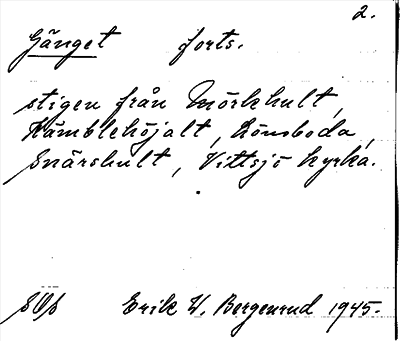 2.
Gänget forts.
stigen från Mörkhult,
Kämblehöjalt, Rönsboda,
Snärshult, Vittsjö kyrka.
Erik W. Bergenrud 1945.